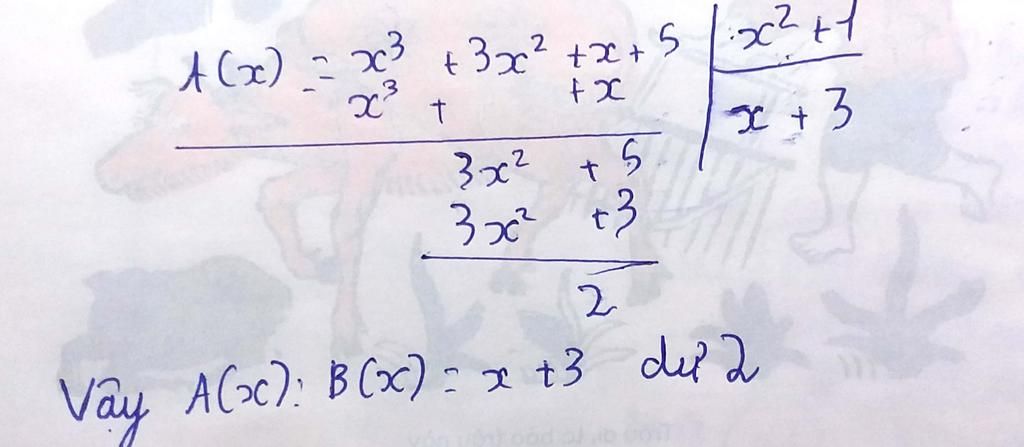 A(x) = x³ + 3x² + x + 5 | x² + 1
x³ + + x | x + 3
3x² + 5
3x² + 3
2
Vậy A(x): B(x) = x + 3 dư 2